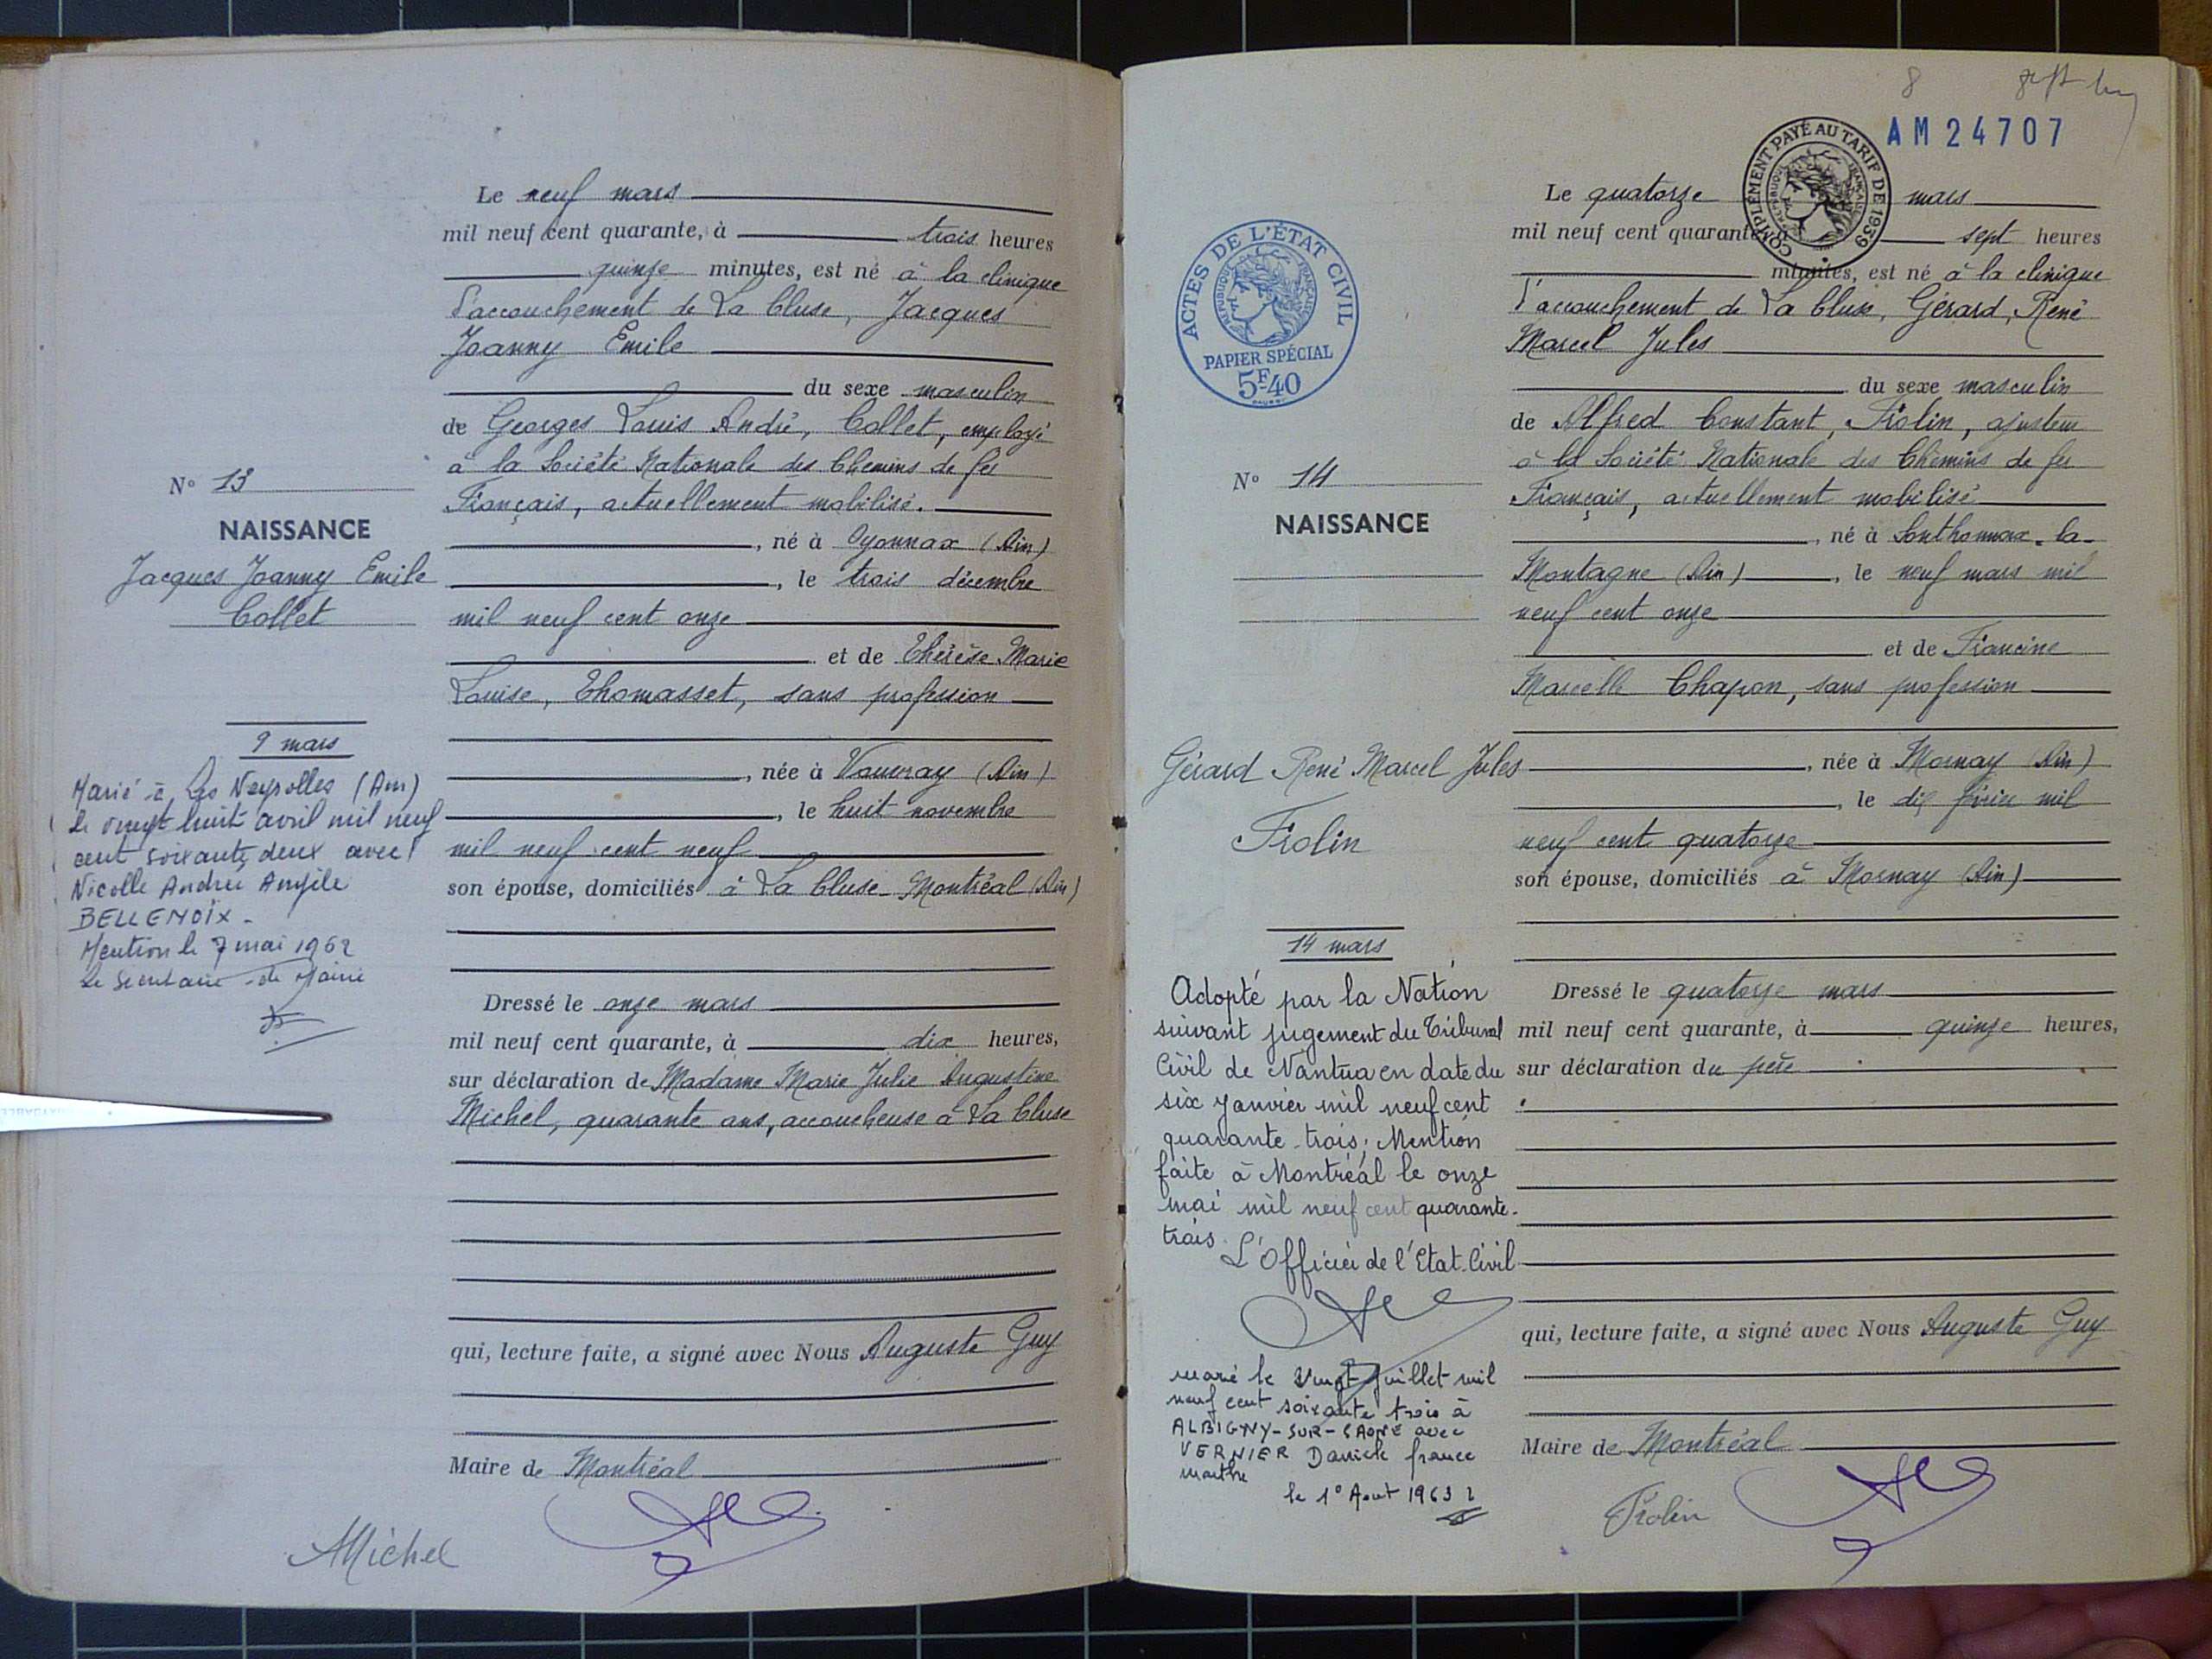 Le neuf mars
mil neuf cent quarante, à trois heures
quinze minutes, est né à la clinique
d'accouchement de La Cluse, Jacques
Joanny Emile
du sexe masculin
de Georges Louis André, Collet, employé
à la Société Nationale des Chemins de fer
Français, actuellement mobilisé.
N° 13
NAISSANCE
Jacques Joanny Emile
Collet
, né à Oyonnax (Ain)
, le trois décembre
mil neuf cent onze
et de Thérèse Marie
Louise, Thomasset, sans profession
, née à Vouvray (Ain)
, le huit novembre
mil neuf cent neuf
son épouse, domiciliés à La Cluse-Montréal (Ain)
9 mars
Marié à Les Neyrolles (Ain)
le vingt huit avril mil neuf
cent soixante deux avec
Nicolle Andrée Angèle
BELLEMOIX -
Mention le 7 mai 1962
Le Secrétaire de Mairie
Dressé le onze mars
mil neuf cent quarante, à dix heures,
sur déclaration de Madame Marie Julie Augustine
Michel, quarante ans, accoucheuse à La Cluse
qui, lecture faite, a signé avec Nous Auguste Guy
Maire de Montréal
Michel
8
AM 24707
COMPLÉMENT PAYÉ AU TARIF DE 1939
RÉPUBLIQUE FRANÇAISE
ACTES DE L'ÉTAT CIVIL
RÉPUBLIQUE FRANÇAISE
PAPIER SPÉCIAL
5F40
Le quatorze mars
mil neuf cent quarante, à sept heures
minutes, est né à la clinique
d'accouchement de La Cluse, Gérard, René
Marcel Jules
du sexe masculin
de Alfred Constant, Frolin, ajusteur
à la Société Nationale des Chemins de fer
Français, actuellement mobilisé
N° 14
NAISSANCE
, né à Sonthonnax-la-
Montagne (Ain), le neuf mars mil
neuf cent onze
et de Francine
Marcelle Chapon, sans profession
Gérard René Marcel Jules
Frolin
, née à Mornay (Ain)
, le dix février mil
neuf cent quatorze
son épouse, domiciliés à Mornay (Ain)
14 mars
Adopté par la Nation
suivant jugement du Tribunal
Civil de Nantua en date du
six janvier mil neuf cent
quarante-trois; Mention
faite à Montréal le onze
mai mil neuf cent quarante-
trois.
L'Officier de l'Etat-Civil
marié le Vingt Juillet mil
neuf cent soixante trois à
ALBIGNY-SUR-SAONE avec
VERNIER Danièle france
marthe
le 1° Aout 1963
Dressé le quatorze mars
mil neuf cent quarante, à quinze heures,
sur déclaration du père
qui, lecture faite, a signé avec Nous Auguste Guy
Maire de Montréal
Frolin